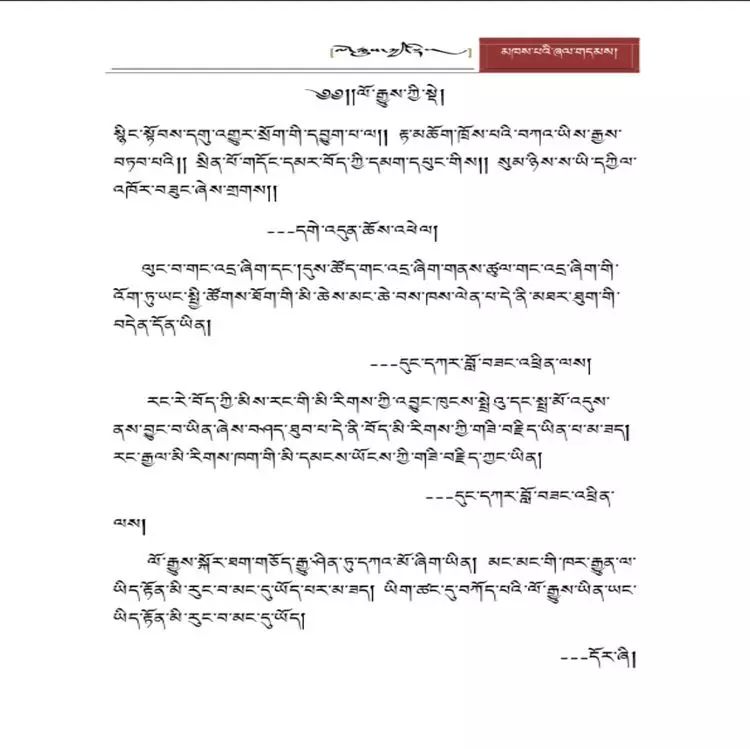 མཁས་པའི་ཞལ་གདམས།
༄༅།།ལོ་རྒྱུས་ཀྱི་སྡེ།
སྙིང་སྟོབས་དགུ་འགྱུར་སྲོག་གི་དབྱུག་པ་ལ།། རྟ་མཆོག་ཁྲོས་པའི་བཀའ་ཡིས་རྒྱས་
བཏབ་པའི།། སྲིན་པོ་གདོང་དམར་བོད་ཀྱི་དམག་དཔུང་གིས།། སུམ་ཉིས་ས་ཡི་དཀྱིལ་
འཁོར་བཟུང་ཞེས་གྲགས།།
---དགེ་འདུན་ཆོས་འཕེལ།
ལུང་བ་གང་འདྲ་ཞིག་དང་།དུས་ཚོད་གང་འདྲ་ཞིག་གནས་ཚུལ་གང་འདྲ་ཞིག་གི་
འོག་ཏུ་ཡང་སྤྱི་ཚོགས་ཐོག་གི་མི་ཆེས་མང་ཆེ་བས་ཁས་ལེན་པ་དེ་ནི་མཐར་ཐུག་གི་
བདེན་དོན་ཡིན།
---དུང་དཀར་བློ་བཟང་འཕྲིན་ལས།
རང་རེ་བོད་ཀྱི་མིས་རང་གི་མི་རིགས་ཀྱི་འབྱུང་ཁུངས་སྤྲེའུ་དང་སྤྲ་མོ་འདུས་
ནས་བྱུང་བ་ཡིན་ཞེས་བཤད་ཐུབ་པ་དེ་ནི་བོད་མི་རིགས་ཀྱི་གཟི་བརྗིད་ཡིན་པ་མ་ཟད།
རང་རྒྱལ་མི་རིགས་ཁག་གི་མི་དམངས་ཡོངས་ཀྱི་གཟི་བརྗིད་ཀྱང་ཡིན།
---དུང་དཀར་བློ་བཟང་འཕྲིན་
ལས།
ལོ་རྒྱུས་སྐོར་ཐག་གཅོད་རྒྱུ་ཤིན་ཏུ་དཀའ་མོ་ཞིག་ཡིན། མང་མང་གི་ཁར་རྒྱུན་ལ་
ཡིད་རྟོན་མི་རུང་བ་མང་དུ་ཡོད་པར་མ་ཟད། ཡིག་ཚང་དུ་བཀོད་པའི་ལོ་རྒྱུས་ཡིན་ཡང་
ཡིད་རྟོན་མི་རུང་བ་མང་དུ་ཡོད།
---དོར་ཞི།